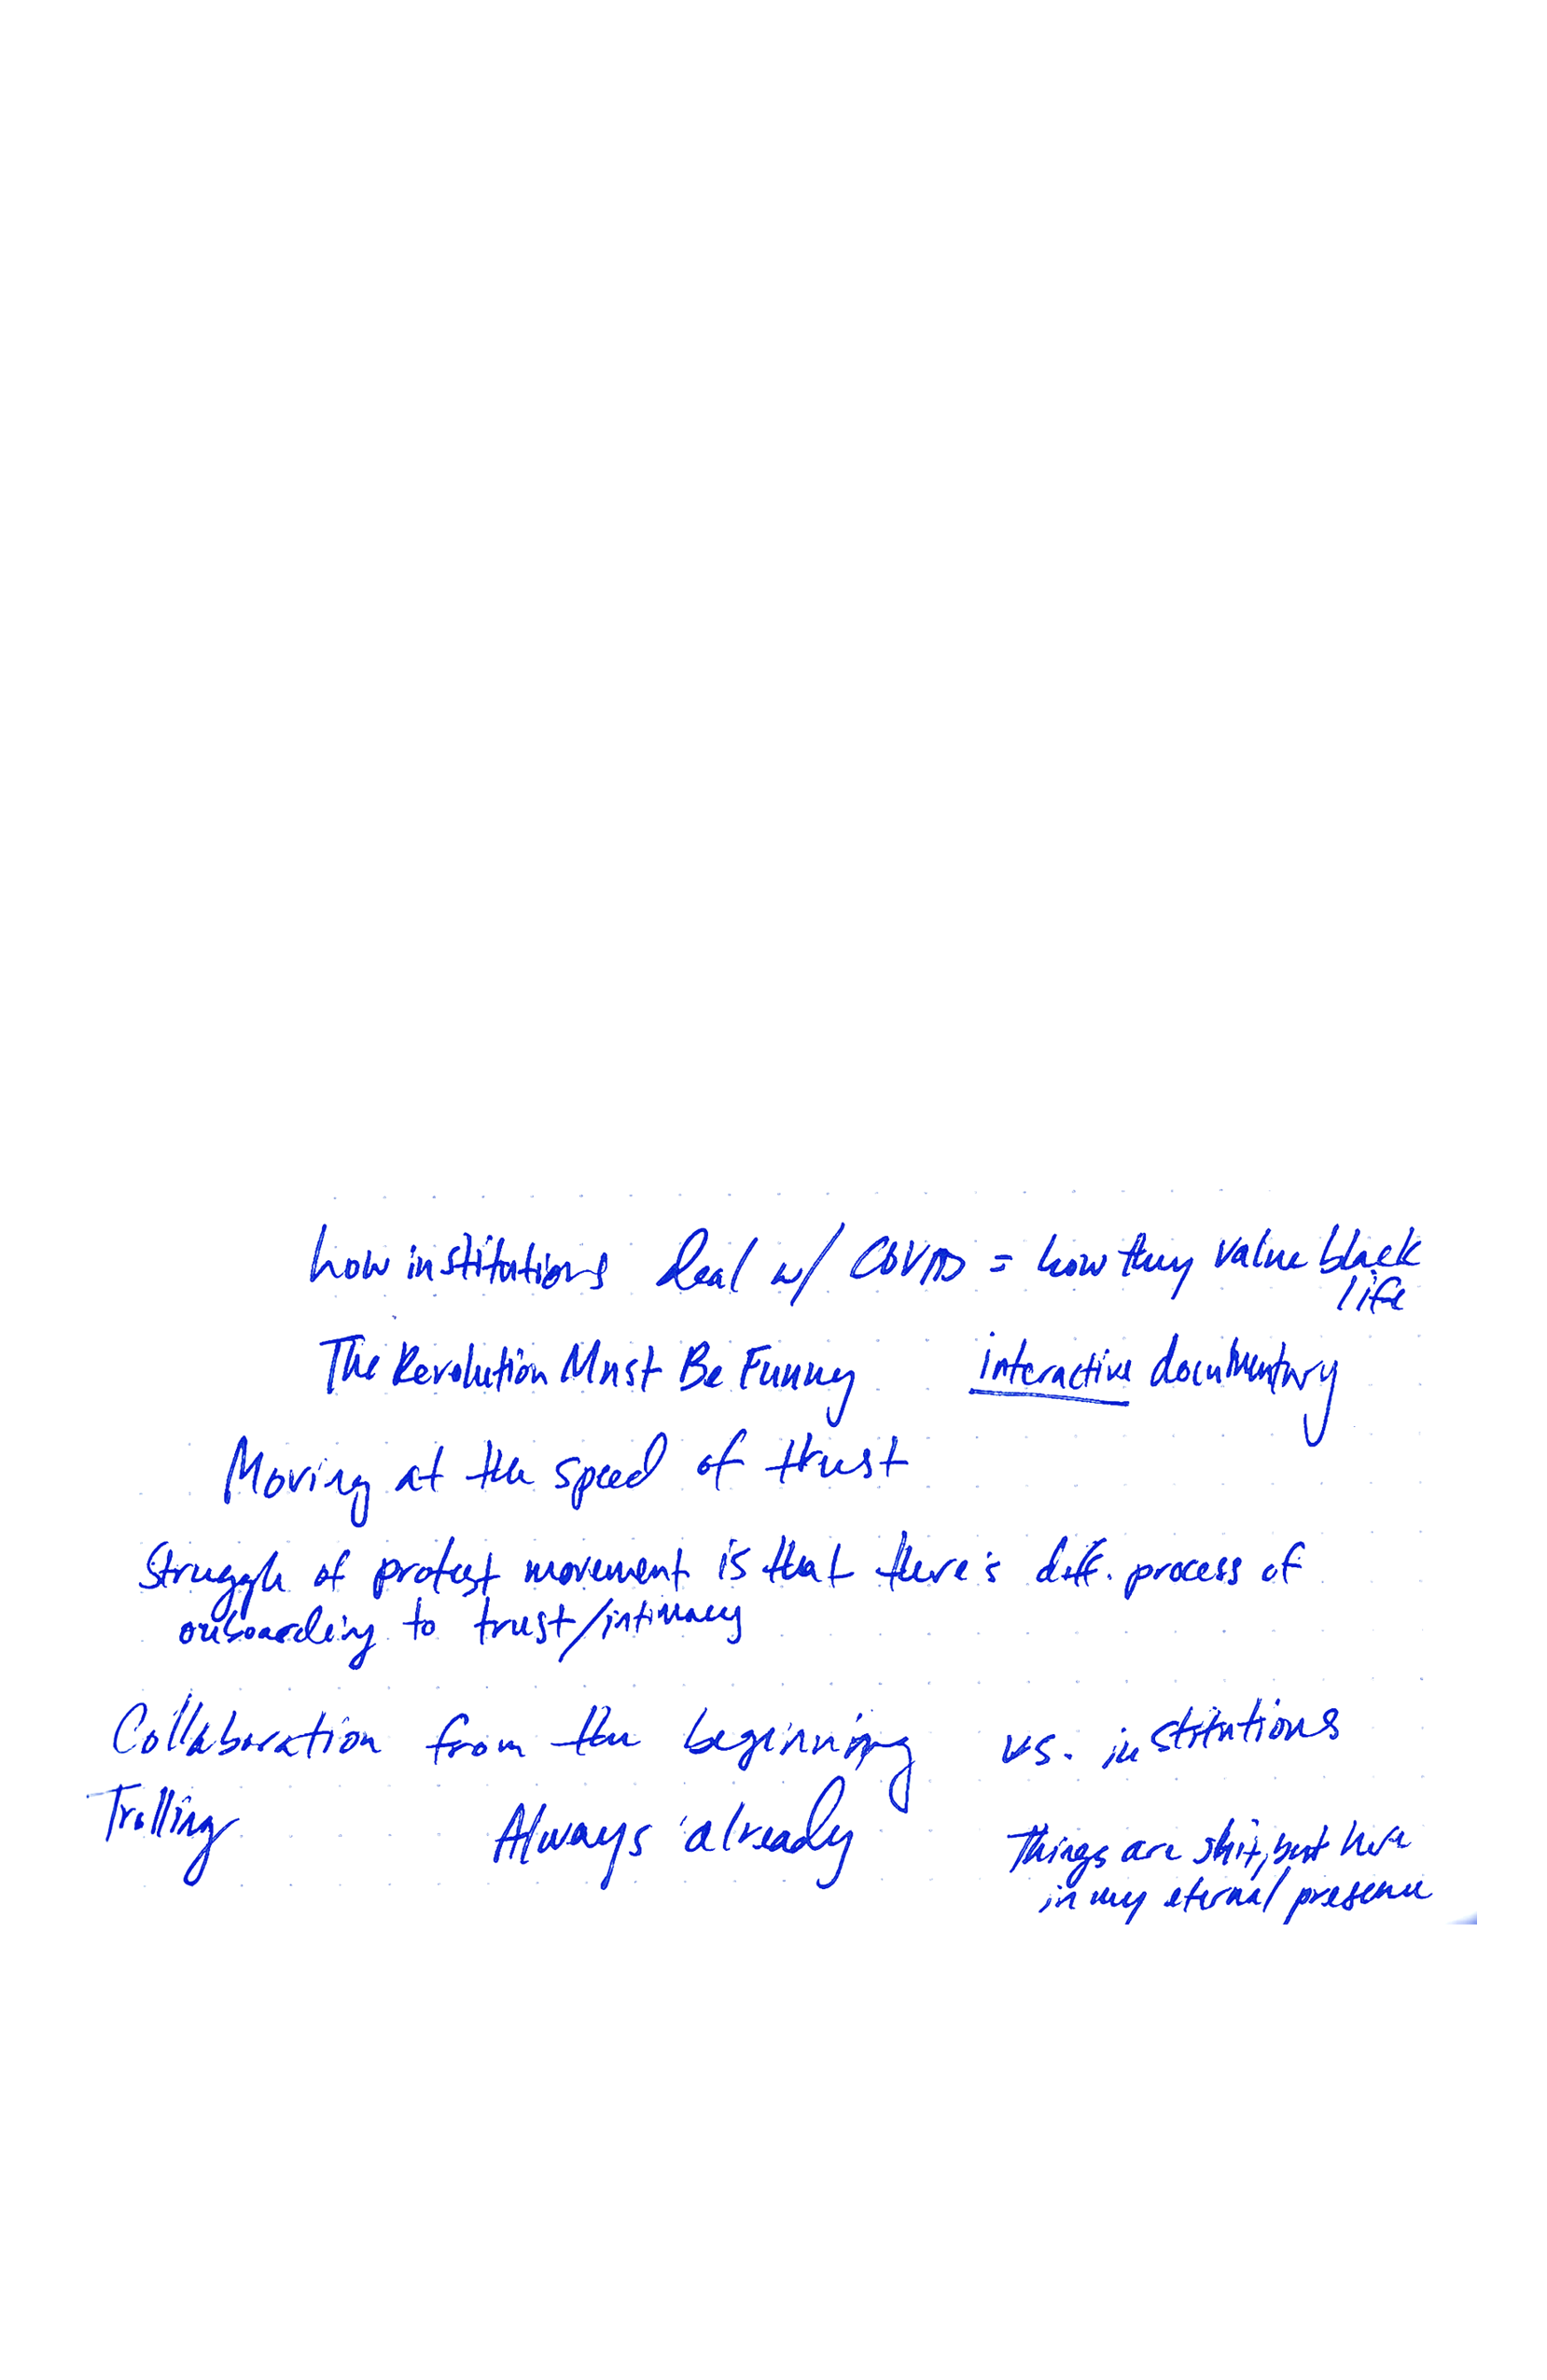 how institutions deal w/ COVID = how they value black
life
The Revolution Must Be Funny interactive documentary
Moving at the speed of trust
Struggle of protest movement is that there's diff. process of
onboarding to trust/intimacy
Collaboration from the beginning vs. institutions
Trolling Always already
Things are shit, but here
in my eternal presence